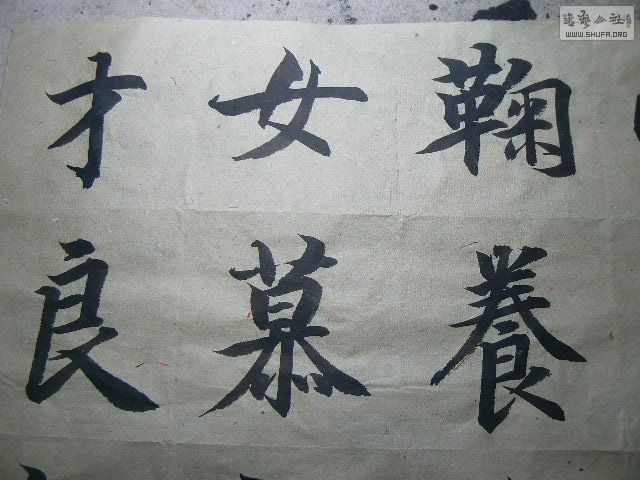 鞠養
女慕
才良
書藝公社
WWW.SHUFA.ORG